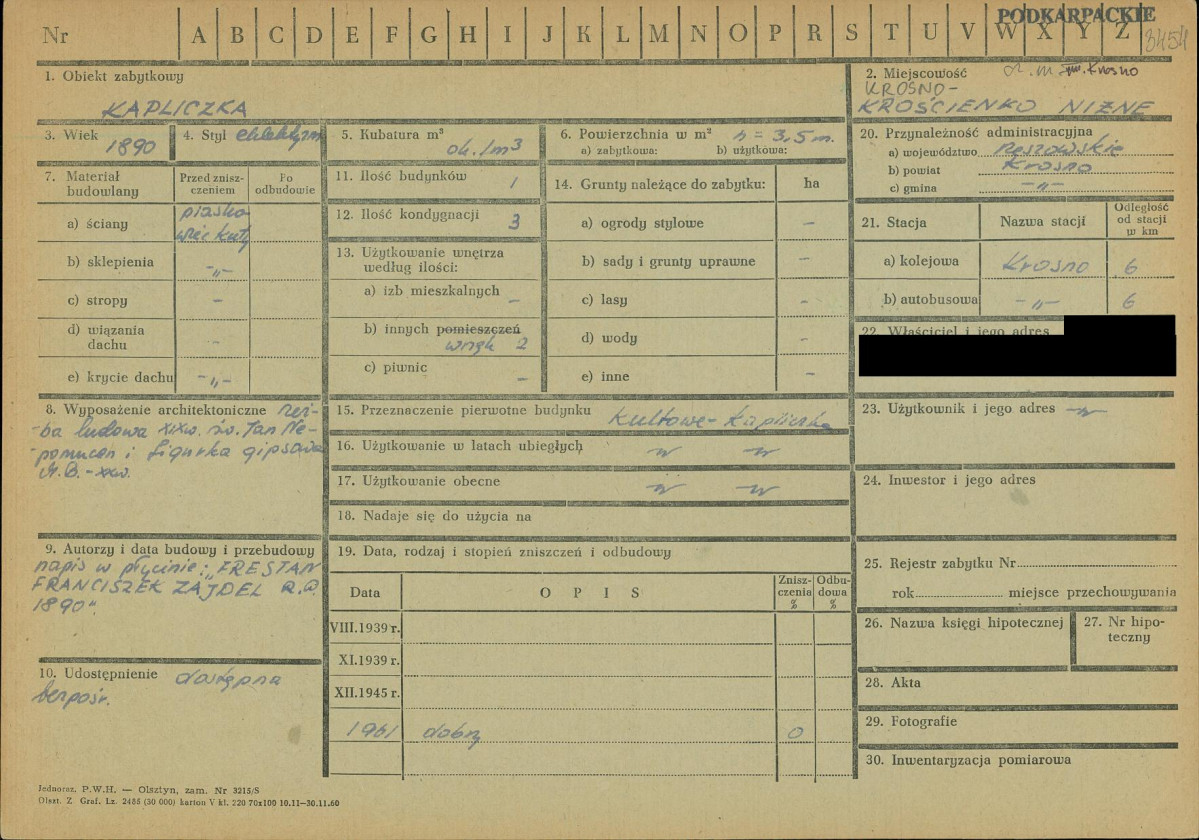 Nr A B C D E F G H I J K L M N O P R S T U V W X Y Z
PODKARPACKIE
3454
1. Obiekt zabytkowy
KAPLICZKA
2. Miejscowość
Krosno
KROSNO-
KROŚCIENKO NIŻNE
3. Wiek
1890
4. Styl eklektyzm
5. Kubatura m³
ok. 1m3
6. Powierzchnia w m² h = 3,5 m.
a) zabytkowa: b) użytkowa:
20. Przynależność administracyjna
a) województwo Rzeszowskie
b) powiat Krosno
c) gmina -„-
7. Materiał budowlany
Przed zniszczeniem
Po odbudowie
a) ściany piasko
wiec kuty
b) sklepienia -„-
c) stropy -
d) wiązania
dachu -
e) krycie dachu -„-
11. Ilość budynków 1
12. Ilość kondygnacji 3
13. Użytkowanie wnętrza
według ilości:
a) izb mieszkalnych -
b) innych pomieszczeń
wnęk 2
c) piwnic -
14. Grunty należące do zabytku: ha
a) ogrody stylowe -
b) sady i grunty uprawne -
c) lasy -
d) wody -
e) inne -
21. Stacja
Nazwa stacji
Odległość
od stacji
w km
a) kolejowa Krosno 6
b) autobusowa -„- 6
22. Właściciel i jego adres
8. Wyposażenie architektoniczne rzeź-
-ba ludowa XIXw. św. Jan Ne-
-pomucen i figurka gipsowa
M.B. - XXw.
15. Przeznaczenie pierwotne budynku kultowe - kapliczka
16. Użytkowanie w latach ubiegłych -„- -„-
17. Użytkowanie obecne -„- -„-
18. Nadaje się do użycia na
23. Użytkownik i jego adres -„-
24. Inwestor i jego adres
9. Autorzy i data budowy i przebudowy
napis w płycinie: „FRESTAN
FRANCISZEK ZAJDEL R.P.
1890".
10. Udostępnienie dostępna
bezpośr.
19. Data, rodzaj i stopień zniszczeń i odbudowy
Data
O P I S
Zniszczenia
%
Odbudowa
%
VIII.1939 r.
XI.1939 r.
XII.1945 r.
1961 dobry 0
25. Rejestr zabytku Nr
rok miejsce przechowywania
26. Nazwa księgi hipotecznej
27. Nr hipo-
teczny
28. Akta
29. Fotografie
30. Inwentaryzacja pomiarowa
Jednoraz. P.W.H. — Olsztyn, zam. Nr 3215/S
Olszt. Z Graf. Lz. 2485 (30 000) karton V kl. 220 70x100 10.11—30.11.60